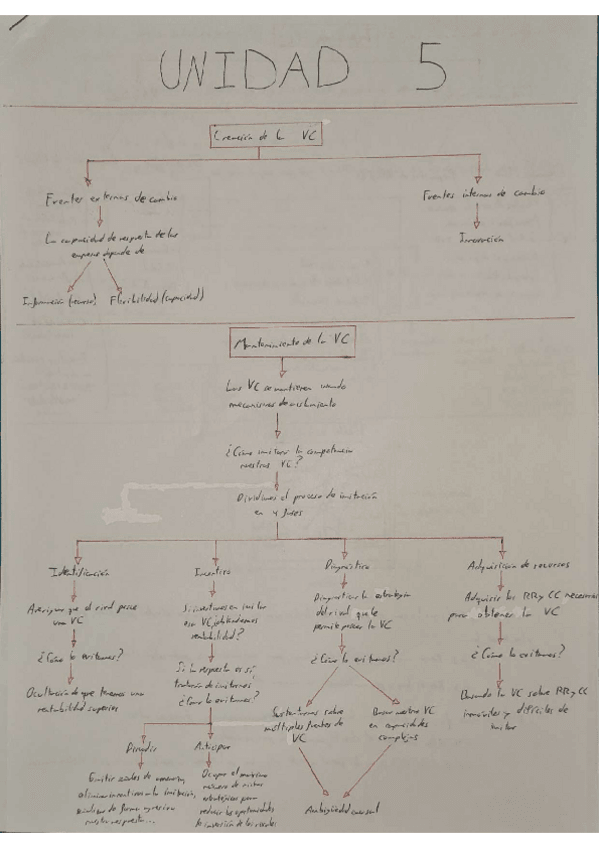 UNIDAD 5
Creación de la VC
Fuentes externas de cambio
Fuentes internas de cambio
La capacidad de respuesta de las
empresas depende de
Innovación
Información (recurso)
Flexibilidad (capacidad)
Mantenimiento de la VC
Las VC se mantienen usando
mecanismos de aislamiento
¿Cómo imitará la competencia
nuestras VC?
Dividimos el proceso de imitación
en 4 fases
Identificación
Incentivo
Diagnóstico
Adquisición de recursos
Averiguar que el rival posee
una VC
Si invertimos en imitar
esa VC ¿obtendremos
rentabilidad?
Diagnosticar la estrategia
del rival que le
permite poseer la VC
Adquirir los RR y CC necesarios
para obtener la VC
¿Cómo lo evitamos?
Si la respuesta es sí
tratarán de imitarnos
¿Cómo lo evitamos?
¿Cómo lo evitamos?
¿Cómo lo evitamos?
Ocultación de que tenemos una
rentabilidad superior
Sustentarnos sobre
múltiples fuentes de
VC
Basar nuestra VC
en capacidades
complejas
Basando la VC sobre RR y CC
inmóviles y difíciles de
imitar
Disuadir
Anticipar
Emitir señales de
eliminar incentivos a la imitación,
de forma agresiva
nuestra respuesta...
Ocupar el máximo
número de nichos
estratégicos para
reducir las oportunidades
de inversión de los rivales
Ambigüedad causal